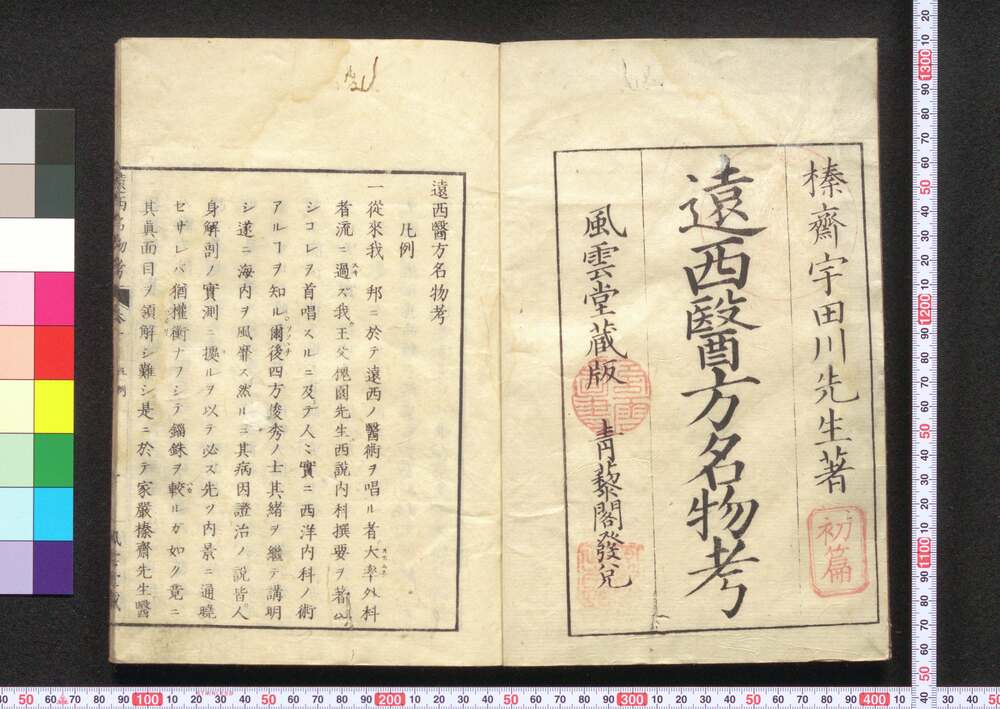 榛齋宇田川先生著
初篇
遠西醫方名物考
風雲堂藏版 青藜閣發兌
遠西醫方名物考
凡例
一從來我 邦ニ於テ遠西ノ醫術ヲ唱ル者大率外科
者流ニ過ズ我王父槐園先生西説内科撰要ヲ著
シコレヲ首唱スルニ及テ人〻實ニ西洋内科ノ術
アルヿヲ知ル爾後四方俊秀ノ士其緒ヲ繼テ講明
シ遂ニ海内ヲ風靡ス然ルニ其病因證治ノ説皆人
身解剖ノ實測ニ據ルヲ以テ必ズ先ヅ内景ニ通曉
セザレバ猶權衡ナフシテ錙銖ヲ較ルガ如ク竟ニ
其眞面目ヲ領解シ難シ是ニ於テ家嚴榛齋先生醫